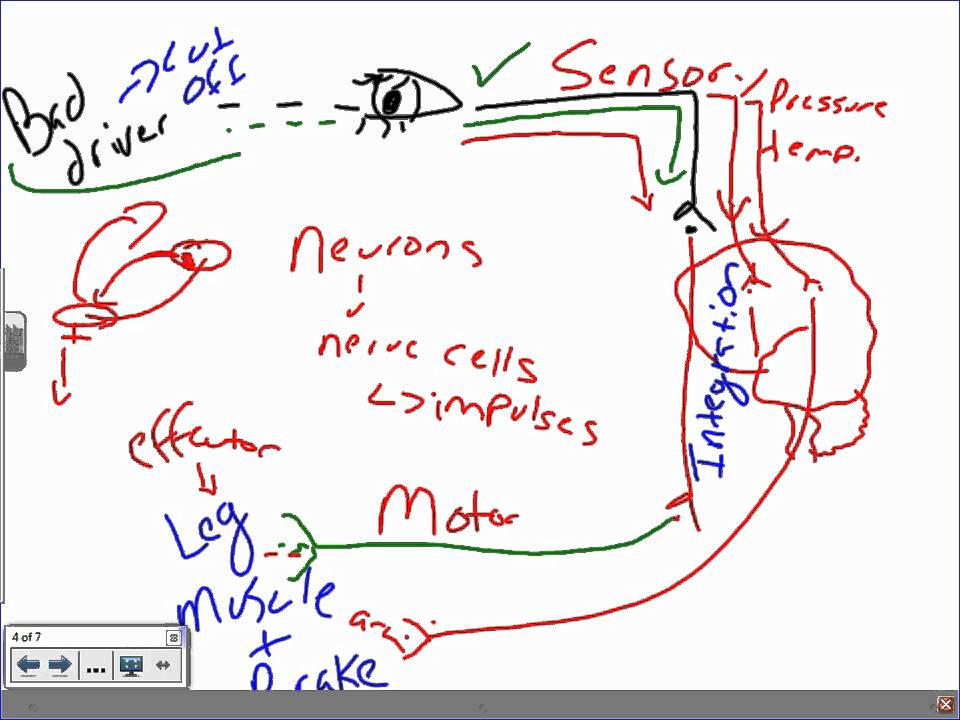 Bad
driver
→ cut
off
✓
Sensory
Pressure
temp.
Neurons
nerve cells
↳ impulses
Integration
effector
Leg
Muscle
+
Brake
Motor
arm
4 of 7
...